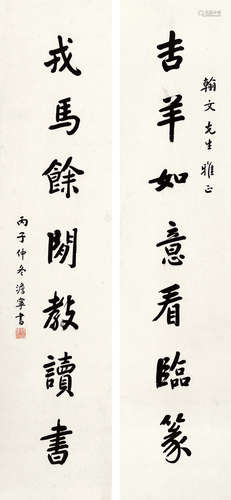 吉羊如意看臨篆
翰文先生雅正
戎馬餘閒教讀書
丙子仲冬澹寧書